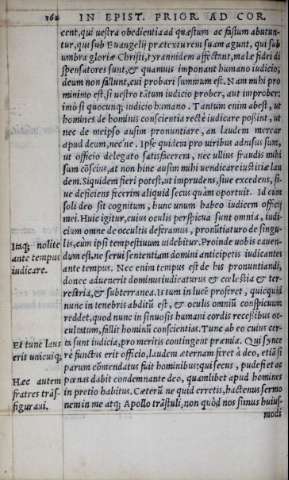 262 IN EPIST. PRIOR. AD COR.
cent, qui uestra obedientia ad quæstum ac fastum abutun-
tur, qui sub Euangelij prætextu rem suam agunt, qui sub
umbra gloriæ Christi, tyrannidem affectant, male fidei di
spensatores sunt, & quamuis imponant humano iudicio,
deum non fallunt, cui probari summum est. Nam mihi pro
minimo est, si uestro tantum iudicio prober, aut improber:
imò si quocunq; iudicio humano. Tantum enim abest, ut
homines de hominis conscientia recte iudicare possint, ut
nec de meipso ausim pronuntiare, an laudem mercar
apud deum, nec'ne. Ipse quidem pro uiribus adnisus sum,
ut officio delegato satisfacerem, nec ullius fraudis mihi
sum cōscius, at non hinc ausim mihi uendicare iustitiæ lau
dem. Siquidem fieri potest, ut imprudens, siue excedens, si-
ue deficiens fecerim aliquid secus quàm oportuit. Id cùm
soli deo sit cognitum, hunc unum habeo iudicem officij
mei. Huic igitur, cuius oculis perspicua sunt omnia, iudi-
cium omne de occultis deferamus, pronūtiaturo de singu-
Itaq; nolite
lis, cum ipsi tempestiuum uidebitur. Proinde uobis cauen-
ante tempus
dum est, ne serui sententiam domini anticipetis iudicantes
iudicare.
ante tempus. Nec enim tempus est de his pronuntiandi,
donec aduenerit dominus iudicaturus & cœlestia & ter-
restria, & subterranea. Is tum in lucē proferet, quicquid
nunc in tenebris abditū est, & oculis omniū conspicuum
reddet, quod nunc in sinuosis humani cordis recessibus oc-
culentum, fallit hominū conscientias. Tunc ab eo cuius cer-
Et tunc laus
ta sunt iudicia, pro meritis contingent præmia. Qui syncе
erit unicuiq;
re functus erit officio, laudem æternam feret à deo, etiā si
parum cōmendatus fuit hominibus: qui secus, pudefiet ac
Hæc autem
pœnas dabit condemnante deo, quamlibet apud homines
fratres trās-
in pretio habitus. Cæterū ne quid erretis, hactenus sermo
figuraui.
nem in me atq; Apollo trāstuli, non quòd nos simus huius-
modi